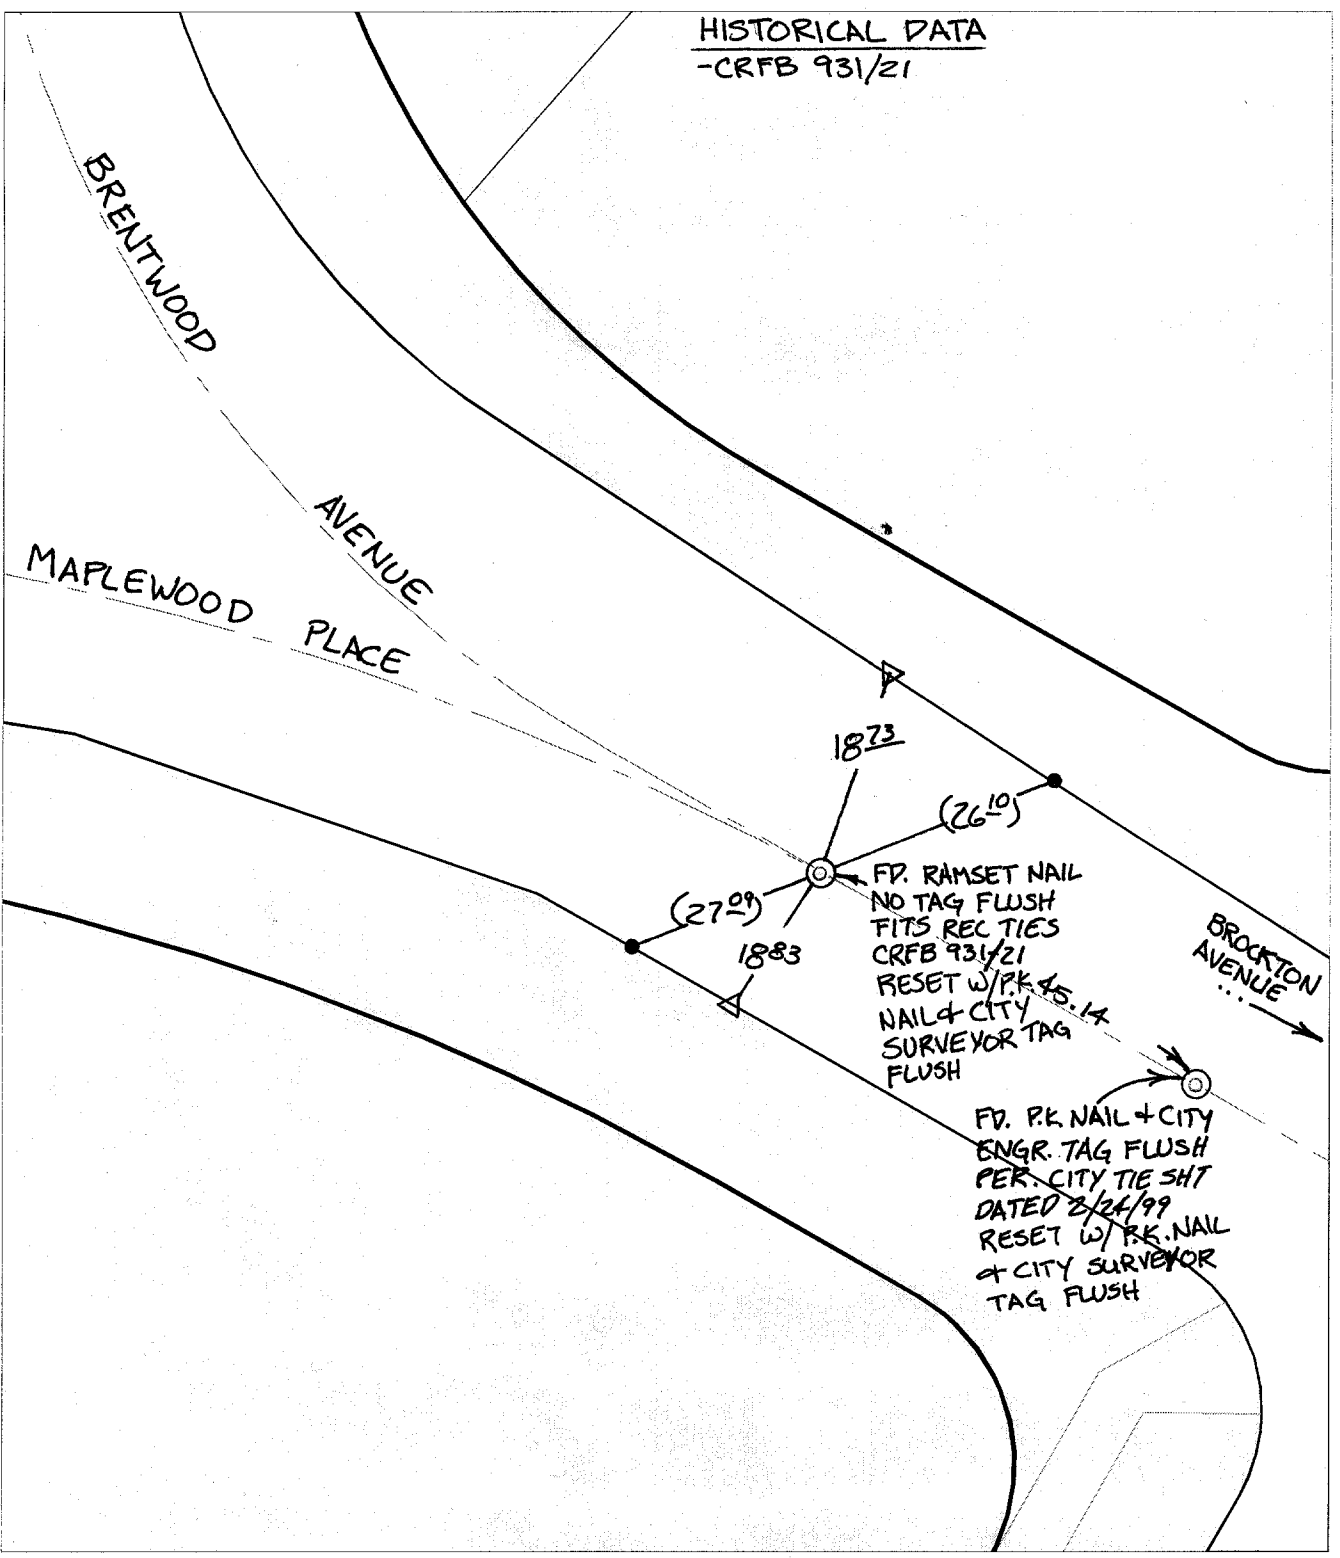 HISTORICAL DATA
-CRFB 931/21
BRENTWOOD
AVENUE
MAPLEWOOD PLACE
18 73
(26 10)
(27 09)
18 83
FD. RAMSET NAIL
NO TAG FLUSH
FITS REC TIES
CRFB 931/21
RESET W/P.K.
NAIL & CITY
SURVEYOR TAG
FLUSH
45.14
BROCKTON
AVENUE
...
FD. P.K. NAIL & CITY
ENGR. TAG FLUSH
PER. CITY TIE SHT
DATED 2/24/99
RESET W/ P.K. NAIL
& CITY SURVEYOR
TAG FLUSH